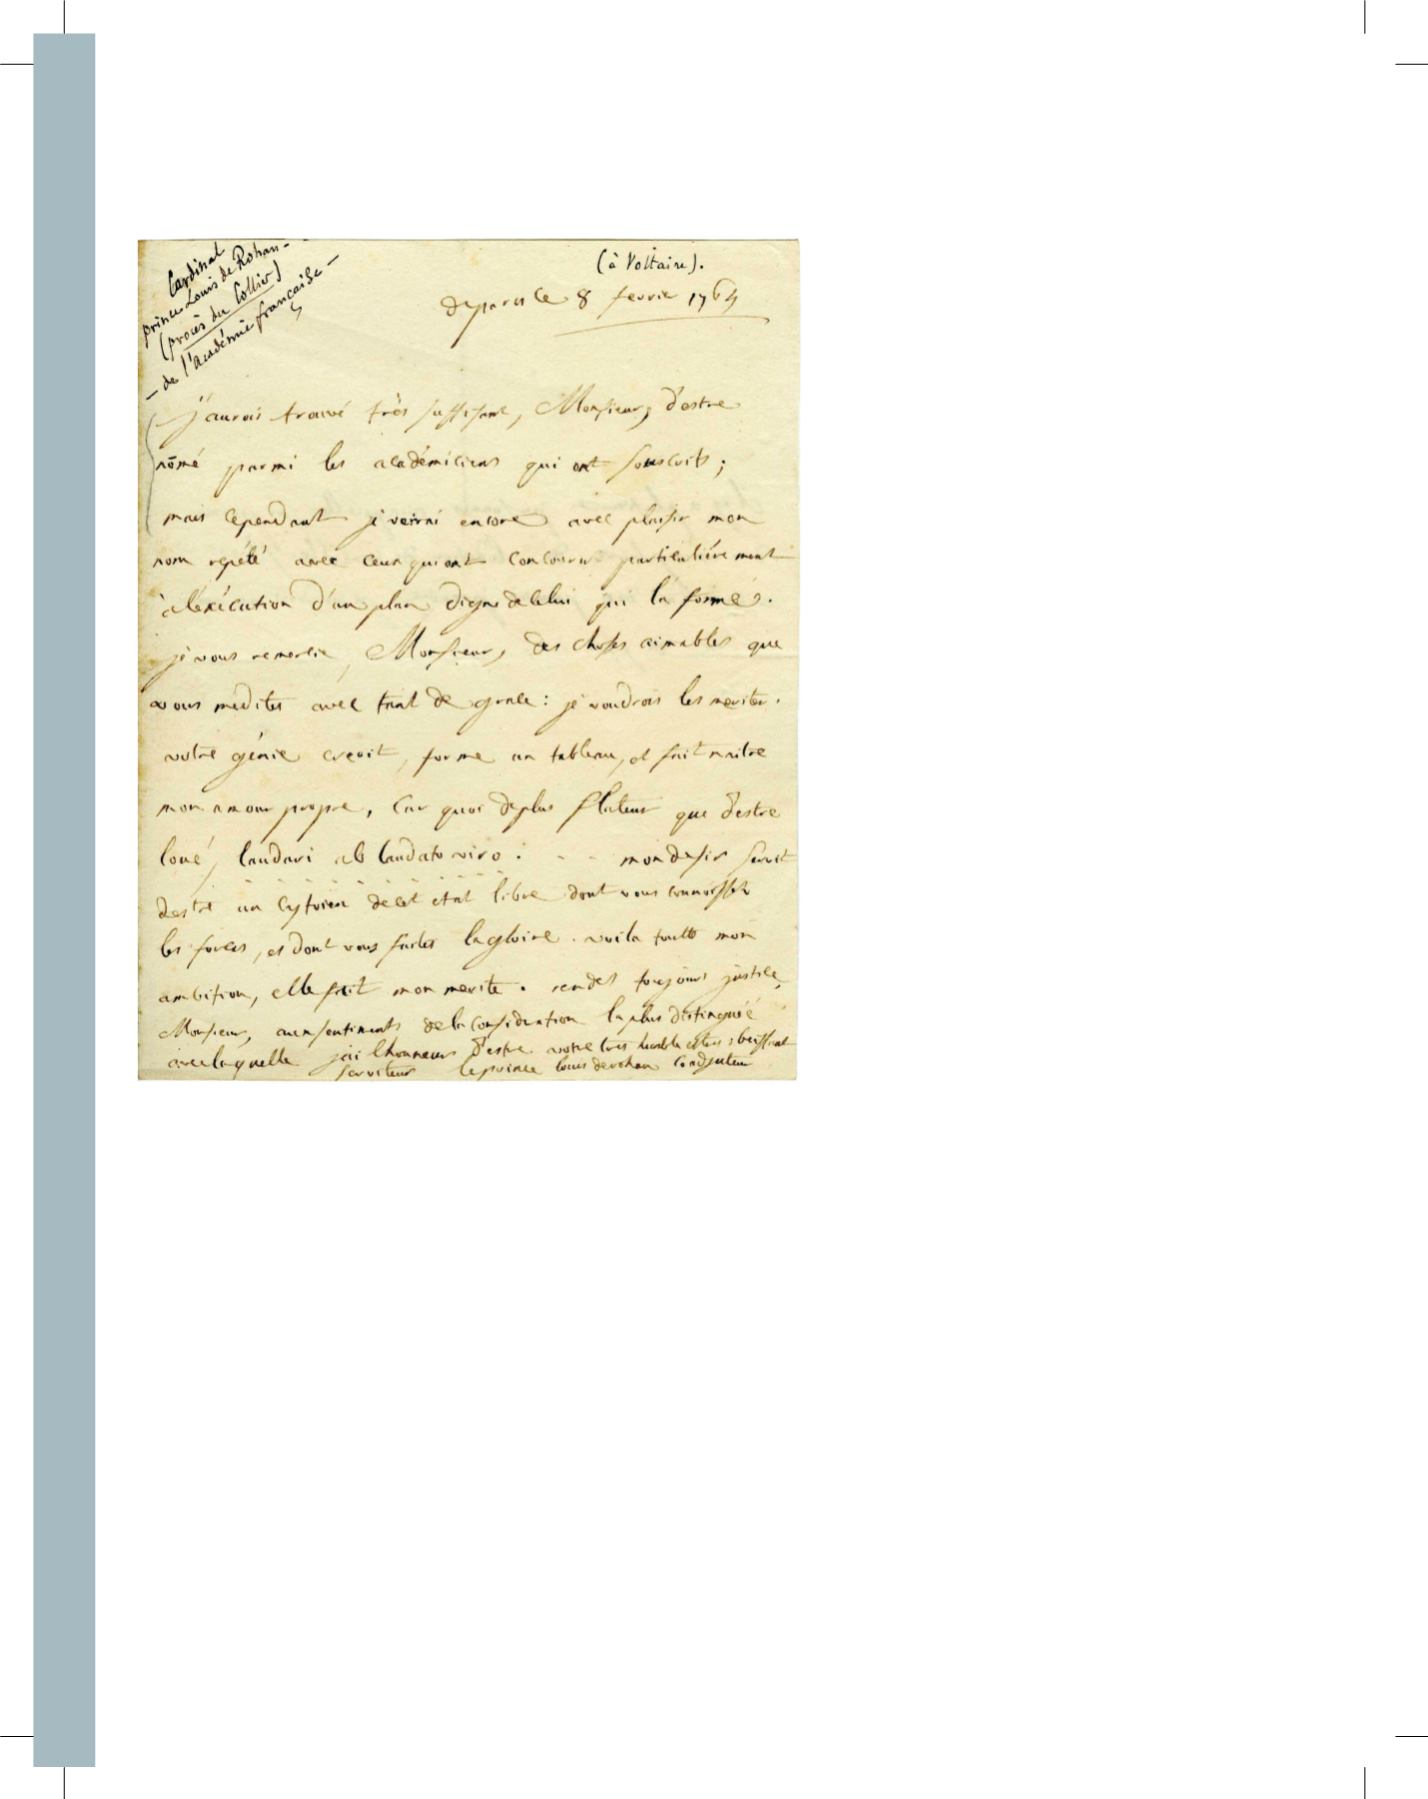 Cardinal
prince Louis de Rohan-
(procès du Collier)
- de l'académie française -
(à Voltaire).
de paris le 8 fevrie 1764
j'aurois trouvé très suffisant, Monsieur, d'estre
nōmé parmi les académiciens qui ont souscrits;
mais cependant je verrai encore avec plaisir mon
nom répété avec ceux qui ont concouru particuliérement
à l'éxécution d'un plan digne de celui qui l'a formé.
je vous remercie, Monsieur, des choses aimables que
vous me dites avec tant de grace: je voudrois les meriter.
votre génie creoit, forme un tableau, et fait naitre
mon amour propre, Car quoi de plus flateur que d'estre
loué, laudari ab laudato viro: - - mon desir seroit
destre un cytoien de cet état libre dont vous connoissez
les forces, et dont vous faites la gloire. voila toutte mon
ambition, elle fait mon merite. rendes toujours justice,
Monsieur, aux sentiments de la consideration la plus distinguée
avec laquelle j'ai l'honneur d'estre votre tres humble et tres obeissant
serviteur le prince louis de rohan coadjuteur